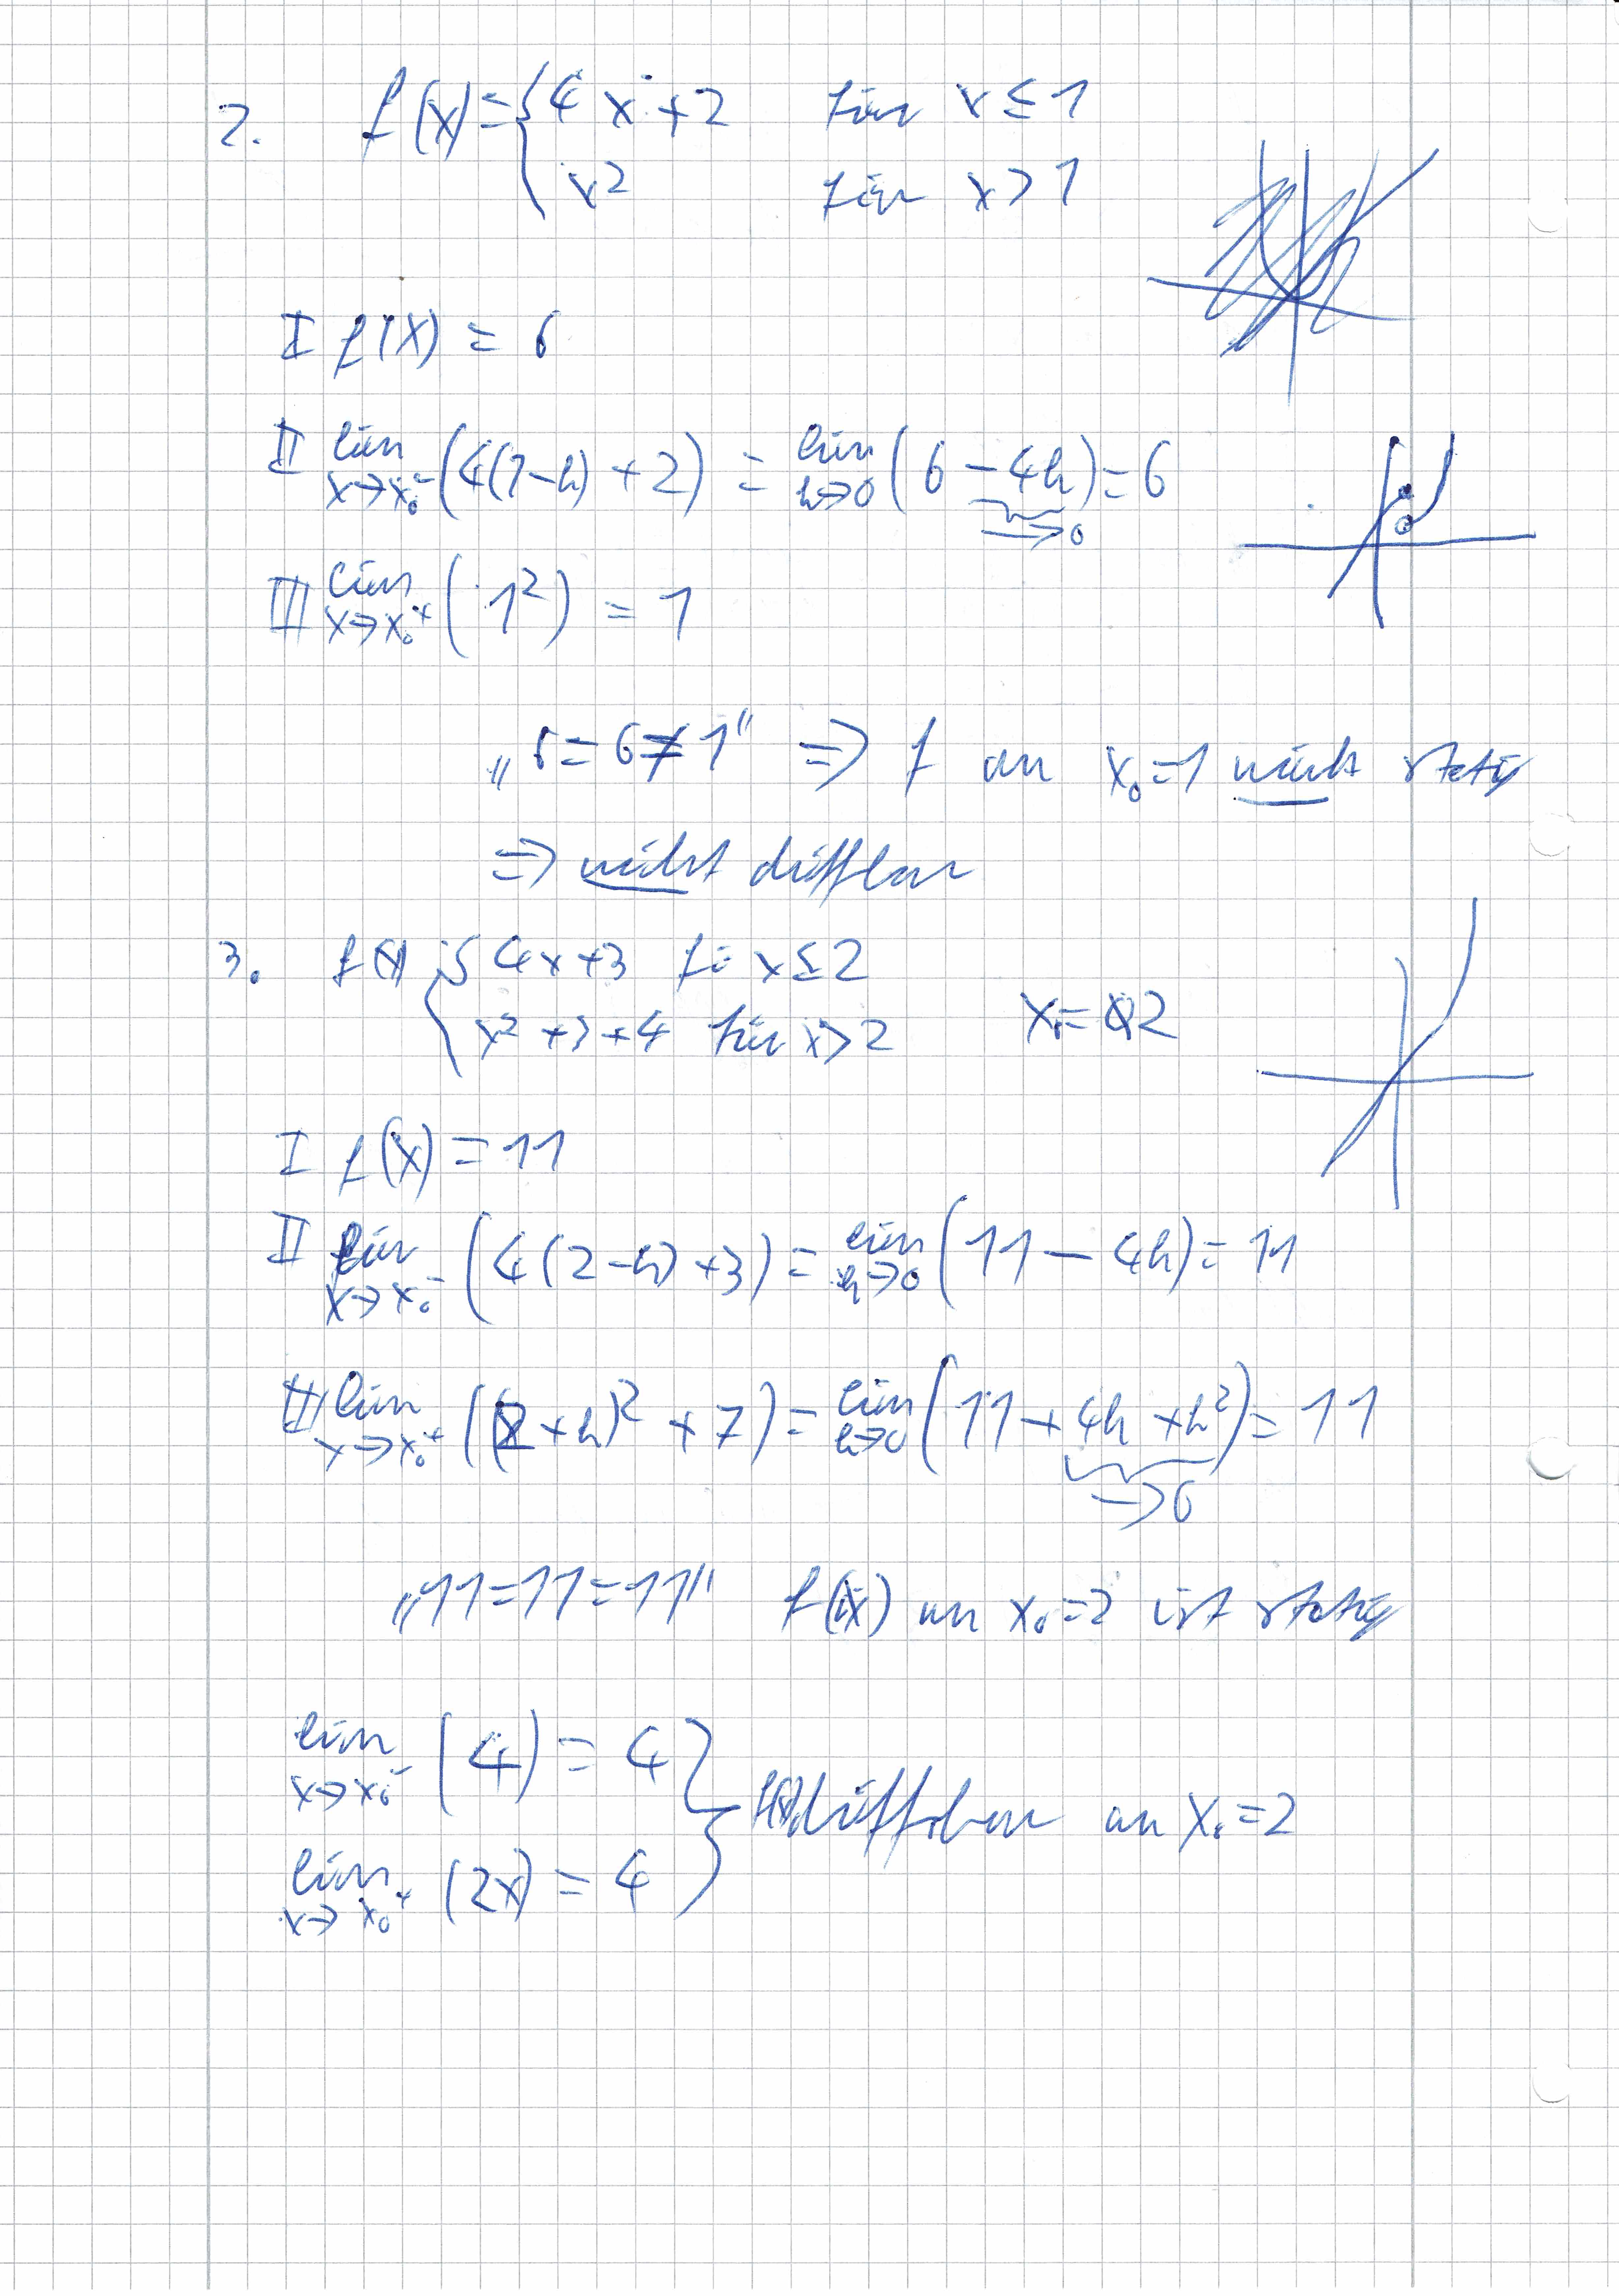 2. f(x) = { 4x + 2 für x ≤ 1
x² für x > 1
I f(x) = 6
II lim x→x₀⁻ (4(1-h) + 2) = lim h→0 (6 - 4h) = 6
→0
III lim x→x₀⁺ (1²) = 1
„6 = 6 ≠ 1" ⇒ f an x₀ = 1 nicht stetig
⇒ nicht diffbar
3. f(x) = { 4x + 3 für x ≤ 2
x² + 3 + 4 für x > 2 x₀ = 2
I f(x) = 11
II lim x→x₀⁻ (4(2-h) + 3) = lim h→0 (11 - 4h) = 11
III lim x→x₀⁺ ((2+h)² + 7) = lim h→0 (11 + 4h + h²) = 11
→0
„11 = 11 = 11" f(x) an x₀ = 2 ist stetig
lim x→x₀⁻ (4) = 4
f(x) diffbar an x₀ = 2
lim x→x₀⁺ (2x) = 4